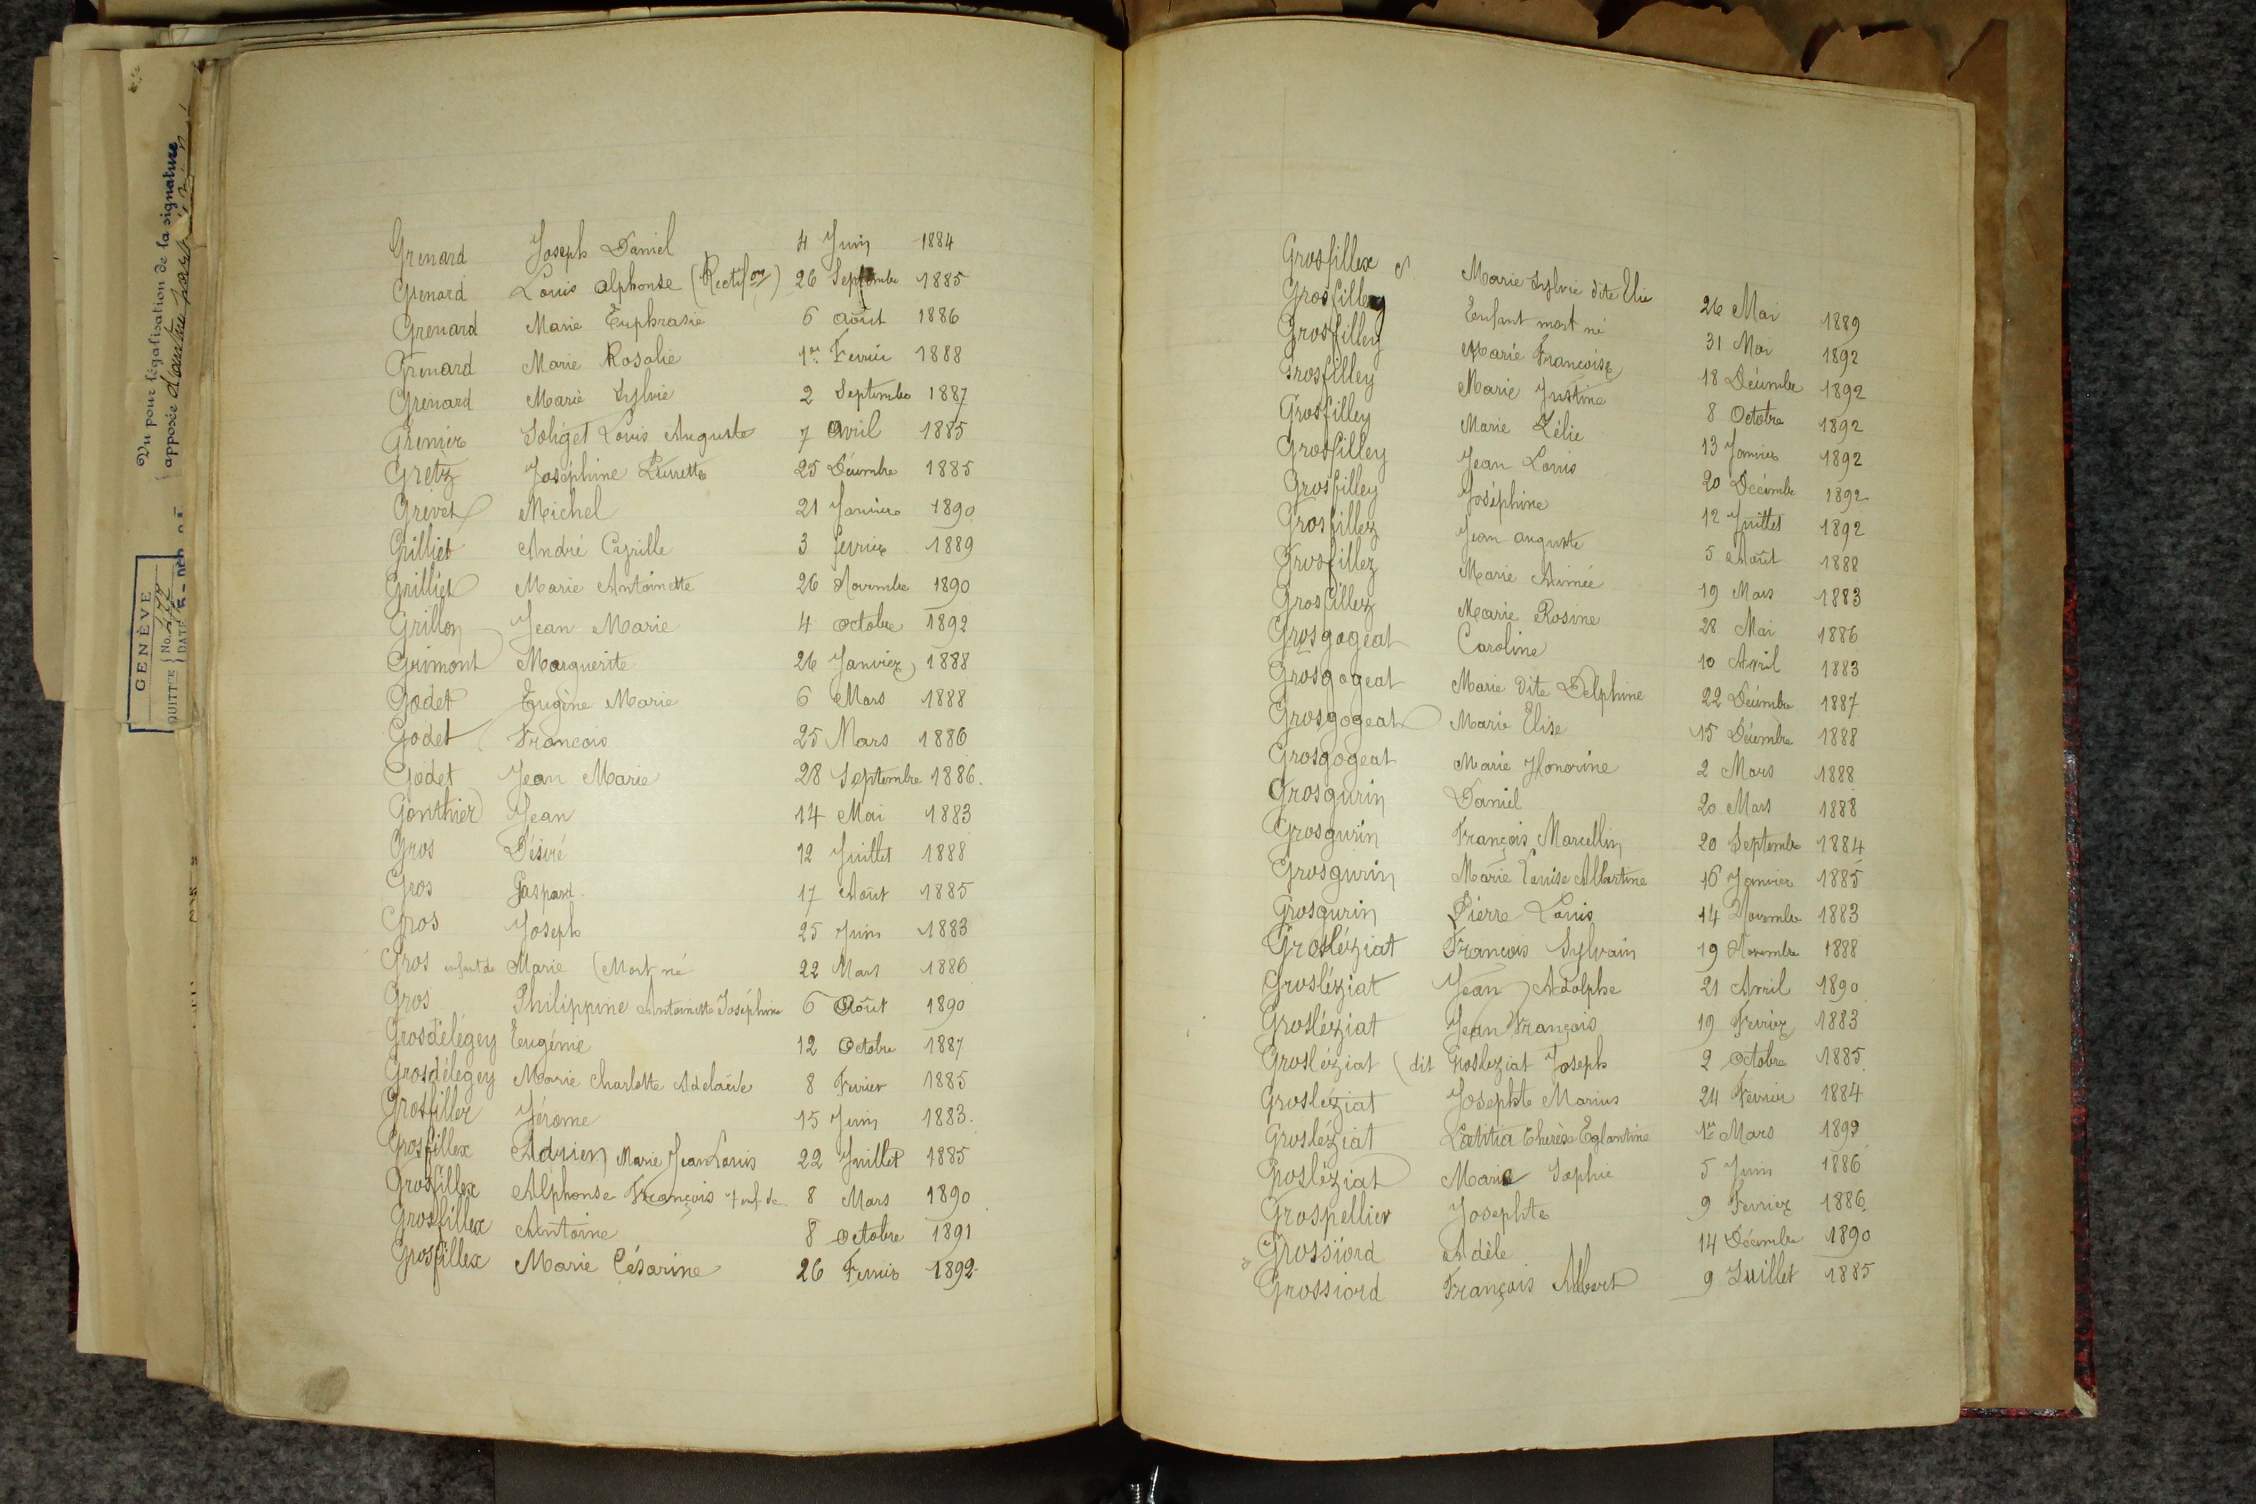 Vu pour légalisation de la signature
apposée d'autre part
GENÈVE
QUITTCE No.
DATE
Grenard Joseph Daniel 4 Juin 1884
Grenard Louis Alphonse (Rectifon) 26 Septembre 1885
Grenard Marie Euphrasie 6 Août 1886
Grenard Marie Rosalie 1er Fevrier 1888
Grenard Marie Sylvie 2 Septembre 1887
Grenier Soliget Louis Auguste 7 Avril 1885
Gretz Joséphine Laurette 25 Décembre 1885
Grivet Michel 21 Janvier 1890
Grilliet André Cyrille 3 fevrier 1889
Grilliet Marie Antoinette 26 Novembre 1890
Grillon Jean Marie 4 Octobre 1892
Grimont Marguerite 26 Janvier 1888
Godet Eugène Marie 6 Mars 1888
Godet François 25 Mars 1886
Godet Jean Marie 28 Septembre 1886.
Gonthier Jean 14 Mai 1883
Gros Désiré 12 Juillet 1888
Gros Gaspard 17 Août 1885
Gros Joseph 25 Juin 1883
Gros enfant de Marie (Mort né 22 Mars 1886
Gros Philippine Antoinette Joséphine 6 Août 1890
Grosdélégey Eugénie 12 Octobre 1887
Grosdélégey Marie Charlotte Adelaïde 8 Fevrier 1885
Grosfillex Jérome 15 Juin 1883.
Grosfillex Adrien Marie Jean Louis 22 Juillet 1885
Grosfillex Alphonse François + enf de 8 Mars 1890
Grosfillex Antoine 8 Octobre 1891
Grosfillex Marie Césarine 26 Fevrier 1892
Grosfillex Marie Sylvie dite Elie 26 Mai 1889
Grosfilley Enfant mort né 31 Mai 1892
Grosfilley Marie Francoise 18 Décembre 1892
Grosfilley Marie Justine 8 Octobre 1892
Grosfilley Marie Zélie 13 Janvier 1892
Grosfilley Jean Louis 20 Décembre 1892
Grosfilley Joséphine 12 Juillet 1892
Grosfillez Jean auguste 5 Août 1888
Grosfillez Marie Aimée 19 Mars 1883
Grosfillez Marie Rosine 28 Mai 1886
Grosgogeat Caroline 10 Avril 1883
Grosgogeat Marie dite Delphine 22 Décembre 1887
Grosgogeat Marie Elise 15 Décembre 1888
Grosgogeat Marie Honorine 2 Mars 1888
Grosgurin Daniel 20 Mars 1888
Grosgurin François Marcellin 20 Septembre 1884
Grosgurin Marie Louise Albertine 16 Janvier 1885
Grosgurin Pierre Louis 14 Novembre 1883
Grosléziat Francois Sylvain 19 Novembre 1888
Grosléziat Jean Adolphe 21 Avril 1890
Grosléziat Jean François 19 Fevrier 1883
Grosléziat (dit Grosleziat Joseph 2 Octobre 1885
Grosléziat Josephte Marius 24 Février 1884
Grosléziat Lætitia Therèse Eglantine 1er Mars 1892
Grosléziat Marie Sophie 5 Juin 1886
Grospellier Josephte 9 Fevrier 1886
Grossiord Adèle 14 Décembre 1890
Grossiord François Albert 9 Juillet 1885